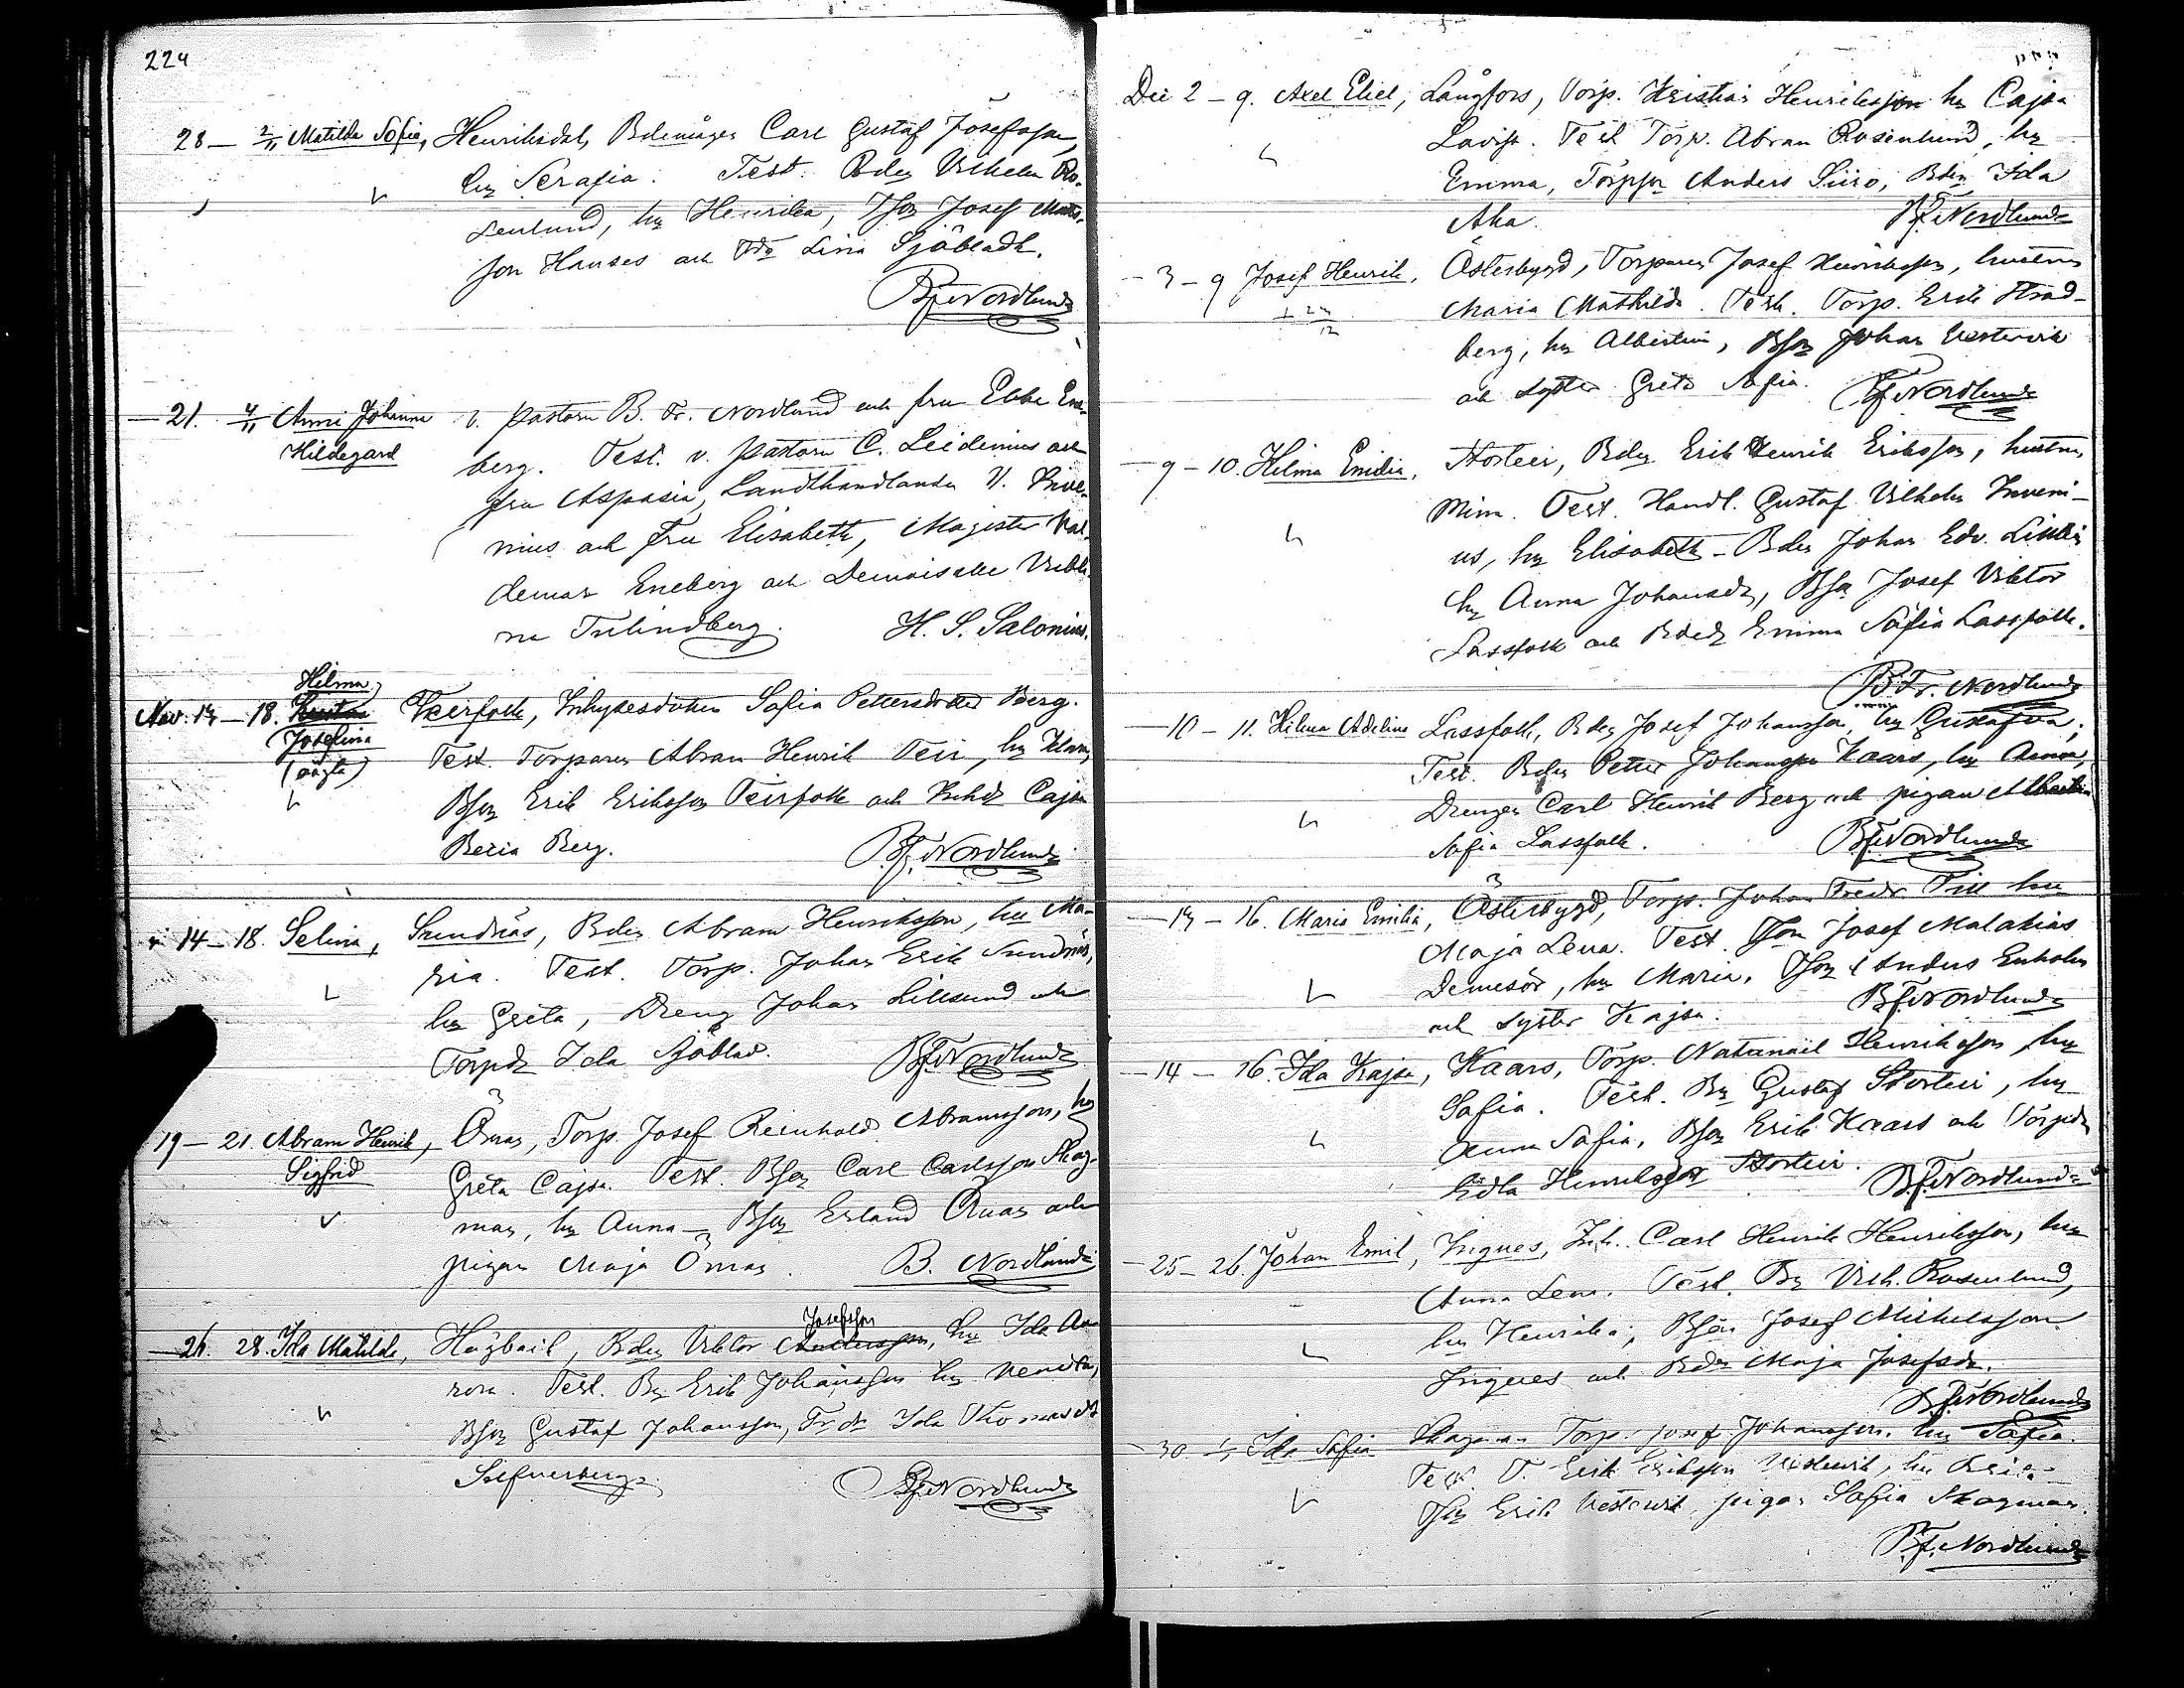 224
28 — 2/11 Matilda Sofia, Henriksdal, Bdemågen Carl Gustaf Josefsson,
hu Serafia. Test. Bden Vilhelm Ro-
senlund, hu Henrika, Tson Josef Matts-
son Hanses och Tdr Lina Sjöbladh.
BFrNordlund
— 21. 4/11 Anni Johanna v. pastorn B. Fr. Nordlund och fru Ebba Ene-
Hildegard
berg. Test. v. pastorn C. Leidenius och
fru Aspasia, Landthandlanden V. Inve-
nius och fru Elisabeth, Magister Val-
demar Eneberg och Demoiselle
na Tulindberg. H. S. Salonius.
Hilma
Nov. 13 — 18. Josefina (oägta) Teirfolk, Inhysesdottren Sofia Pettersdotter Berg.
Test. Torparen Abram Henrik Teir, hu
Bson Erik Eriksson Teirfolk och Inhdr Cajsa
Beria Berg. BFrNordlund
" 14 — 18. Selina, Sundnäs, Bden Abram Henriksson, hu Ma-
ria. Test. Torp. Johan Erik Sundnäs,
hu Greta, Dreng Johan Lillsund och
Torpdr Ida Sjöblad. BFrNordlund
19 — 21. Abram Henrik, Ömas, Torp. Josef Reinhold Abramsson, hu
Sigfrid
Greta Cajsa. Test. Bson Carl Carlsson Skog-
man, hu Anna — Bson Erland Ömas och
pigan Maja Ömas. B. Nordlund
Josefsson
— 26. 28. Ida Matilda, Högback, Bden Viktor Andersson, hu Ida Au-
rora. Test. Bn Erik Johansson hu
Bson Gustaf Johansson, Ida Thomasdr
BFrNordlund
Dec 2 — 9. Axel Eliel, Långfors, Torp. Kristian Henriksson hu Cajsa
Lovisa. Test Torp. Abram Rosenlund, hu
Emma, Torpson Anders Siiro, Bdn Ida
Aka. BFrNordlund
— 3 — 9 Josef Henrik, Österbygd, Torparen Josef Henriksson, hustrun
+ 24/12
Maria Mathilda. Test. Torp. Erik Strad-
berg, hu Albertina, Bson Johan Vestervik
och syster Greta Sofia. BFrNordlund
— 9 — 10. Hilma Emilia, Storteir, Bden Erik Henrik Eriksson, hustrun
Mina. Test. Handl. Gustaf Vilhelm Inveni-
us, hu Elisabeth — Bden Johan Edv.
hu Anna Johansdr, Bson Josef Viktor
Lassfolk och Bdr Emma Sofia Lassfolk.
B. Fr. Nordlund
— 10 — 11. Hilma Adelina Lassfolk, Bden Josef Johansson, hu Gustafva;
Test. Bden Petter Johansson Kaars, hu Anna,
Drengen Carl Henrik Berg och pigan Albertina
Sofia Lassfolk. BFrNordlund
— 13 — 16. Maria Emilia, Österbygd, Torp. Johan Fredr. hu
Maja Lena. Test. Tson Josef Malakias
Demesör, hu Maria, Tson Anders Enholm
och syster Kajsa. BFrNordlund
— 14 — 16. Ida Kajsa, Kaars, Torp. Natanael Henriksson hu
Sofia. Test. Bn Gustaf Storteir, hu
Anna Sofia, Bson Erik Kaars och Torpdr
Edla Henriksdr Storteir. BFrNordlund
— 25 — 26. Johan Emil, Ingves, Inh. Carl Henrik Henriksson, hu
Anna Lena. Test. Bn Vilh. Rosenlund,
hu Henrika; Bson Josef Mickelsson
Ingves och Bdr Maja Josefsdr.
BFrNordlund
— 30. Ida Sofia Skogman Torp. Josef Johansson, hu Sofia.
Test T. Erik Eriksson Vestervik, hu
Tson Erik Vestervik, pigan Sofia Skogman.
B.F. Nordlund